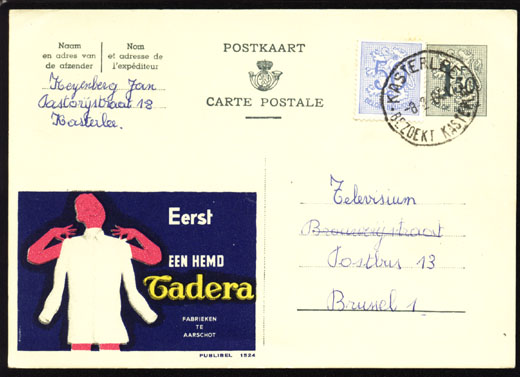 Naam
en adres van
de afzender
Nom
et adresse de
l'expéditeur
Heyenberg Jan
Pastorijstraat 18
Kasterlee.
POSTKAART
CARTE POSTALE
1,50
KASTERLEE
BEZOEKT KASTERLEE
Televisium
Brouwerijstraat
Postbus 13
Brussel 1
Eerst
EEN HEMD
Tadera
FABRIEKEN
TE
AARSCHOT
PUBLIBEL 1524